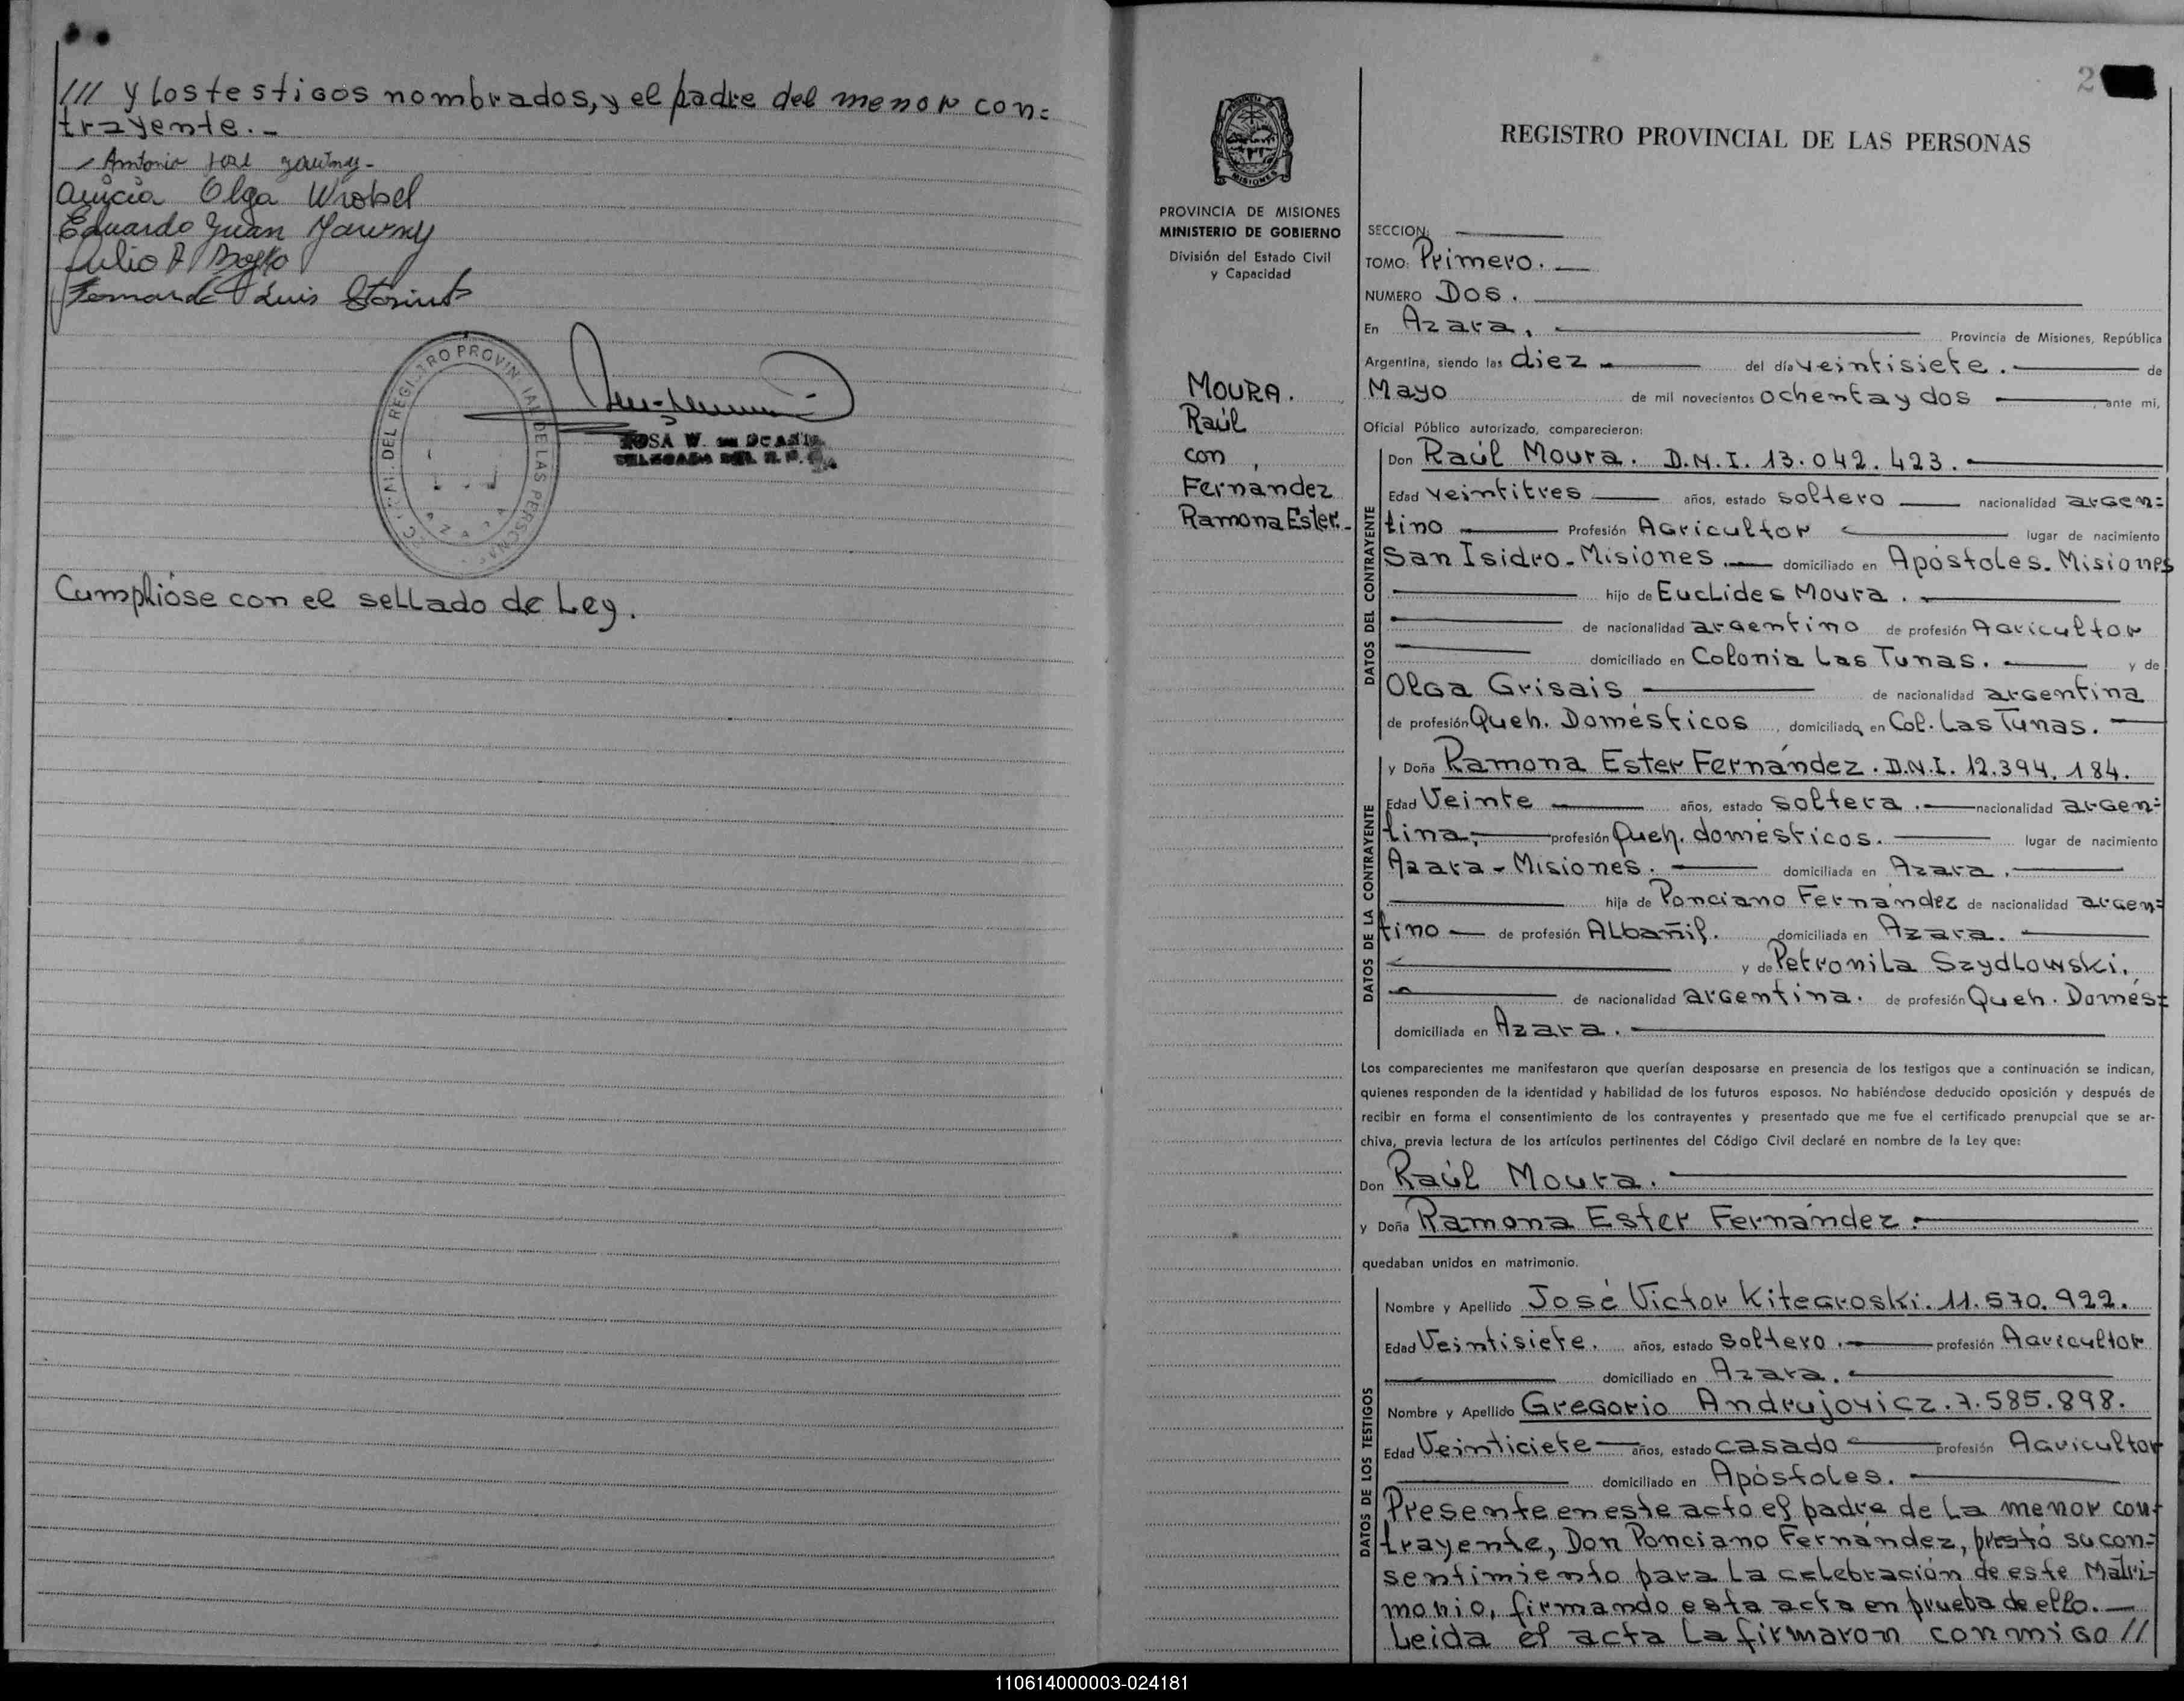 /// y los testigos nombrados, y el padre del menor con=
trayente.-
Antonio José
Alicia Olga Wrobel
Eduardo Juan Jawny
Julio A
Fernando Luis
DEL REGISTRO PROVINCIAL DE LAS PERSONAS
AZARA
ROSA W. de OCAÑA
DELEGADA DEL R. P.
Cumplióse con el sellado de Ley.
2
MISIONES
PROVINCIA DE MISIONES
MINISTERIO DE GOBIERNO
División del Estado Civil
y Capacidad
MOURA.
Raúl
con
Fernández
Ramona Ester.-
REGISTRO PROVINCIAL DE LAS PERSONAS
SECCION:
TOMO: Primero.
NUMERO Dos.
En Azara, Provincia de Misiones, República
Argentina, siendo las diez del día veintisiete. de
Mayo de mil novecientos ochenta y dos, ante mi,
Oficial Público autorizado, comparecieron:
DATOS DEL CONTRAYENTE
Don Raúl Moura. D.N.I. 13.042.423.
Edad veintitres años, estado soltero nacionalidad argen=
tino Profesión Agricultor lugar de nacimiento
San Isidro-Misiones. domiciliado en Apóstoles. Misiones
hijo de Euclides Moura.
de nacionalidad argentino de profesión Agricultor
domiciliado en Colonia Las Tunas. y de
Olga Grisais de nacionalidad argentina
de profesión Queh. Domésticos, domiciliada en Col. Las Tunas.
DATOS DE LA CONTRAYENTE
y Doña Ramona Ester Fernández. D.N.I. 12.394.184.
Edad Veinte años, estado soltera. nacionalidad argen=
tina; profesión Queh. domésticos. lugar de nacimiento
Azara-Misiones. domiciliada en Azara.
hija de Ponciano Fernández de nacionalidad argen=
tino de profesión Albañil. domiciliada en Azara.
y de Petronila Szydlowski.
de nacionalidad argentina. de profesión Queh. Domés=
domiciliada en Azara.
Los comparecientes me manifestaron que querían desposarse en presencia de los testigos que a continuación se indican,
quienes responden de la identidad y habilidad de los futuros esposos. No habiéndose deducido oposición y después de
recibir en forma el consentimiento de los contrayentes y presentado que me fue el certificado prenupcial que se ar-
chiva, previa lectura de los artículos pertinentes del Código Civil declaré en nombre de la Ley que:
Don Raúl Moura.
y Doña Ramona Ester Fernández.
quedaban unidos en matrimonio.
DATOS DE LOS TESTIGOS
Nombre y Apellido José Victor Kitegroski. 11.570.922.
Edad Veintisiete. años, estado soltero. profesión Agricultor
domiciliado en Azara.
Nombre y Apellido Gregorio Andrujovicz. 7.585.898.
Edad Veinticiete años, estado casado profesión Agricultor
domiciliado en Apóstoles.
Presente en este acto el padre de la menor con=
trayente, Don Ponciano Fernández, prestó su con=
sentimiento para la celebración de este Matri=
monio, firmando esta acta en prueba de ello.
Leida el acta la firmaron conmigo //
110614000003-024181